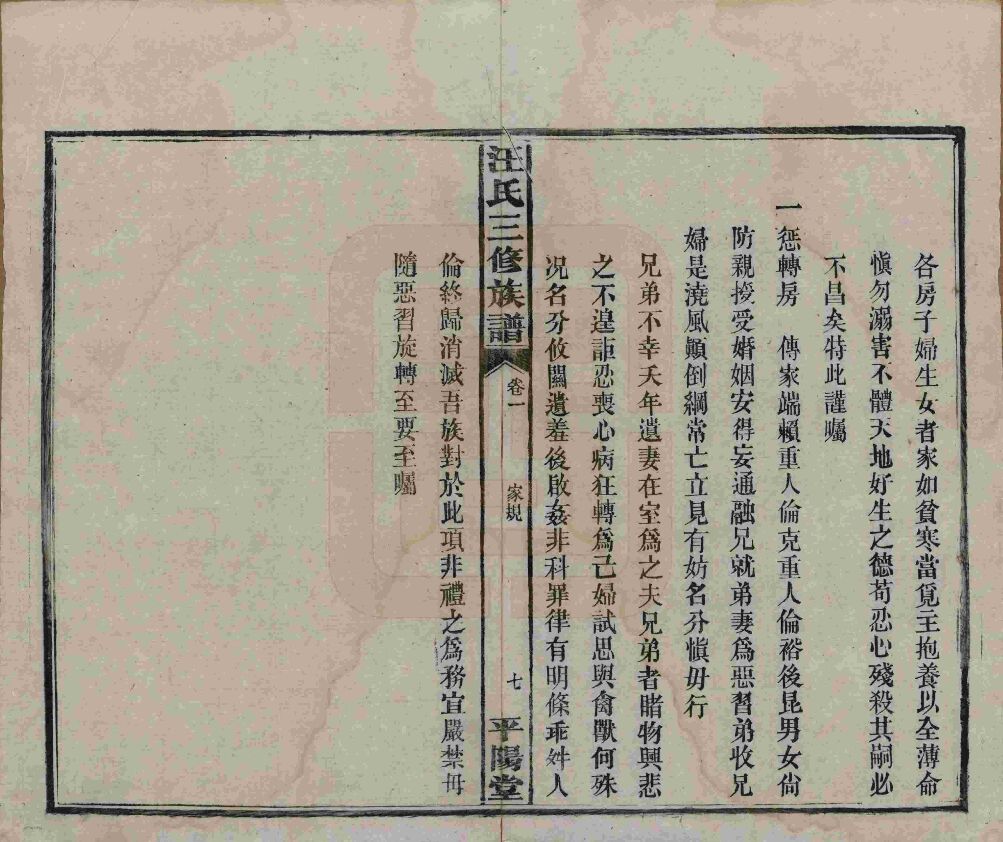 各房子婦生女者家如貧寒當覓主抱養以全薄命
愼勿溺害不體天地好生之德苟忍心殘殺其嗣必
不昌矣特此謹囑
一懲轉房　傳家端賴重人倫克重人倫裕後昆男女尙
防親授受婚姻安得妄通融兄就弟妻爲惡習弟收兄
婦是澆風顚倒綱常亡立見有妨名分愼毋行
兄弟不幸夭年遺妻在室爲之夫兄弟者睹物興悲
之不遑詎忍喪心病狂轉爲己婦試思與禽獸何殊
况名分攸關遺羞後啟姦非科罪律有明條乖舛人
汪氏三修族譜
卷一
家規
七
平陽堂
倫終歸消滅吾族對於此項非禮之爲務宜嚴禁毋
隨惡習旋轉至要至囑